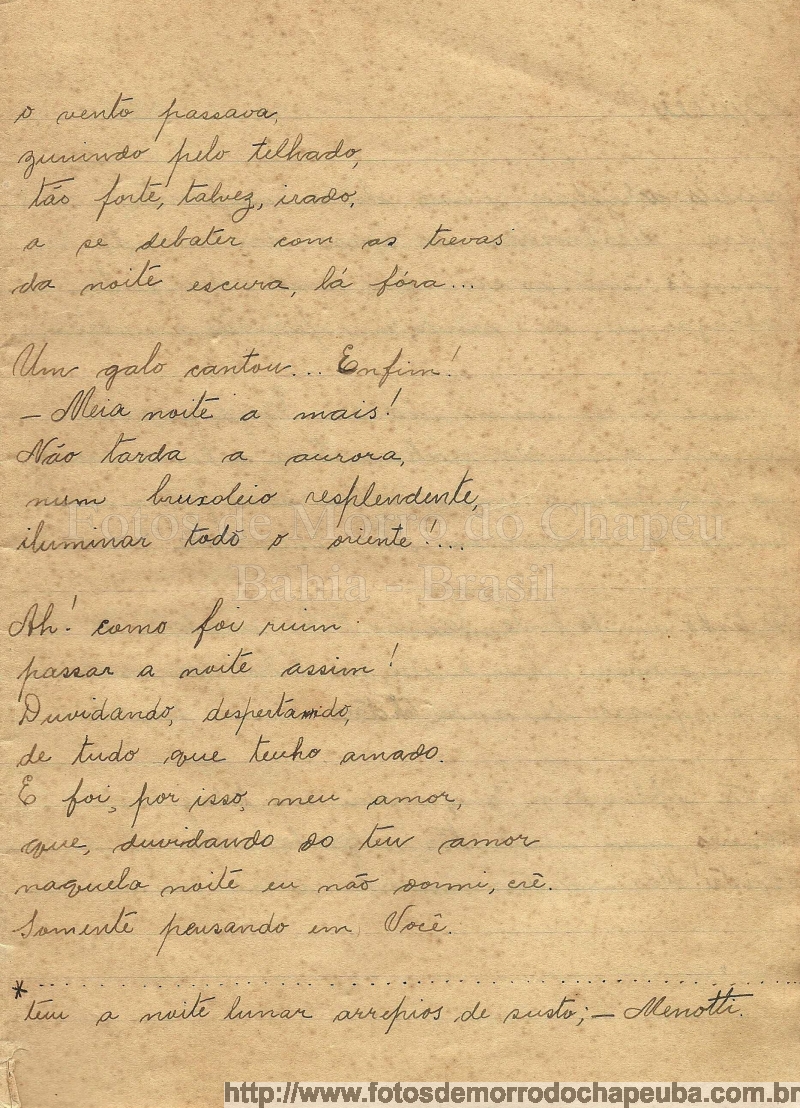 o vento passava,
zunindo pelo telhado,
tão forte, talvez, irado,
a se debater com as trevas
da noite escura, lá fóra...
Um galo cantou... Enfim!
— Meia noite a mais!
Não tarda a aurora,
num bruxoleio resplendente,
iluminar todo o oriente!...
Ah! como foi ruim
passar a noite assim!
Duvidando, despertando,
de tudo que tenho amado.
E foi, por isso, meu amor,
que, duvidando do teu amor
naquela noite eu não dormi, crê.
Somente pensando em Você.
* ................................................
tem a noite lunar arrepios de susto; — Menotti.
Fotos de Morro do Chapéu
Bahia - Brasil
http://www.fotosdemorrodochapeuba.com.br